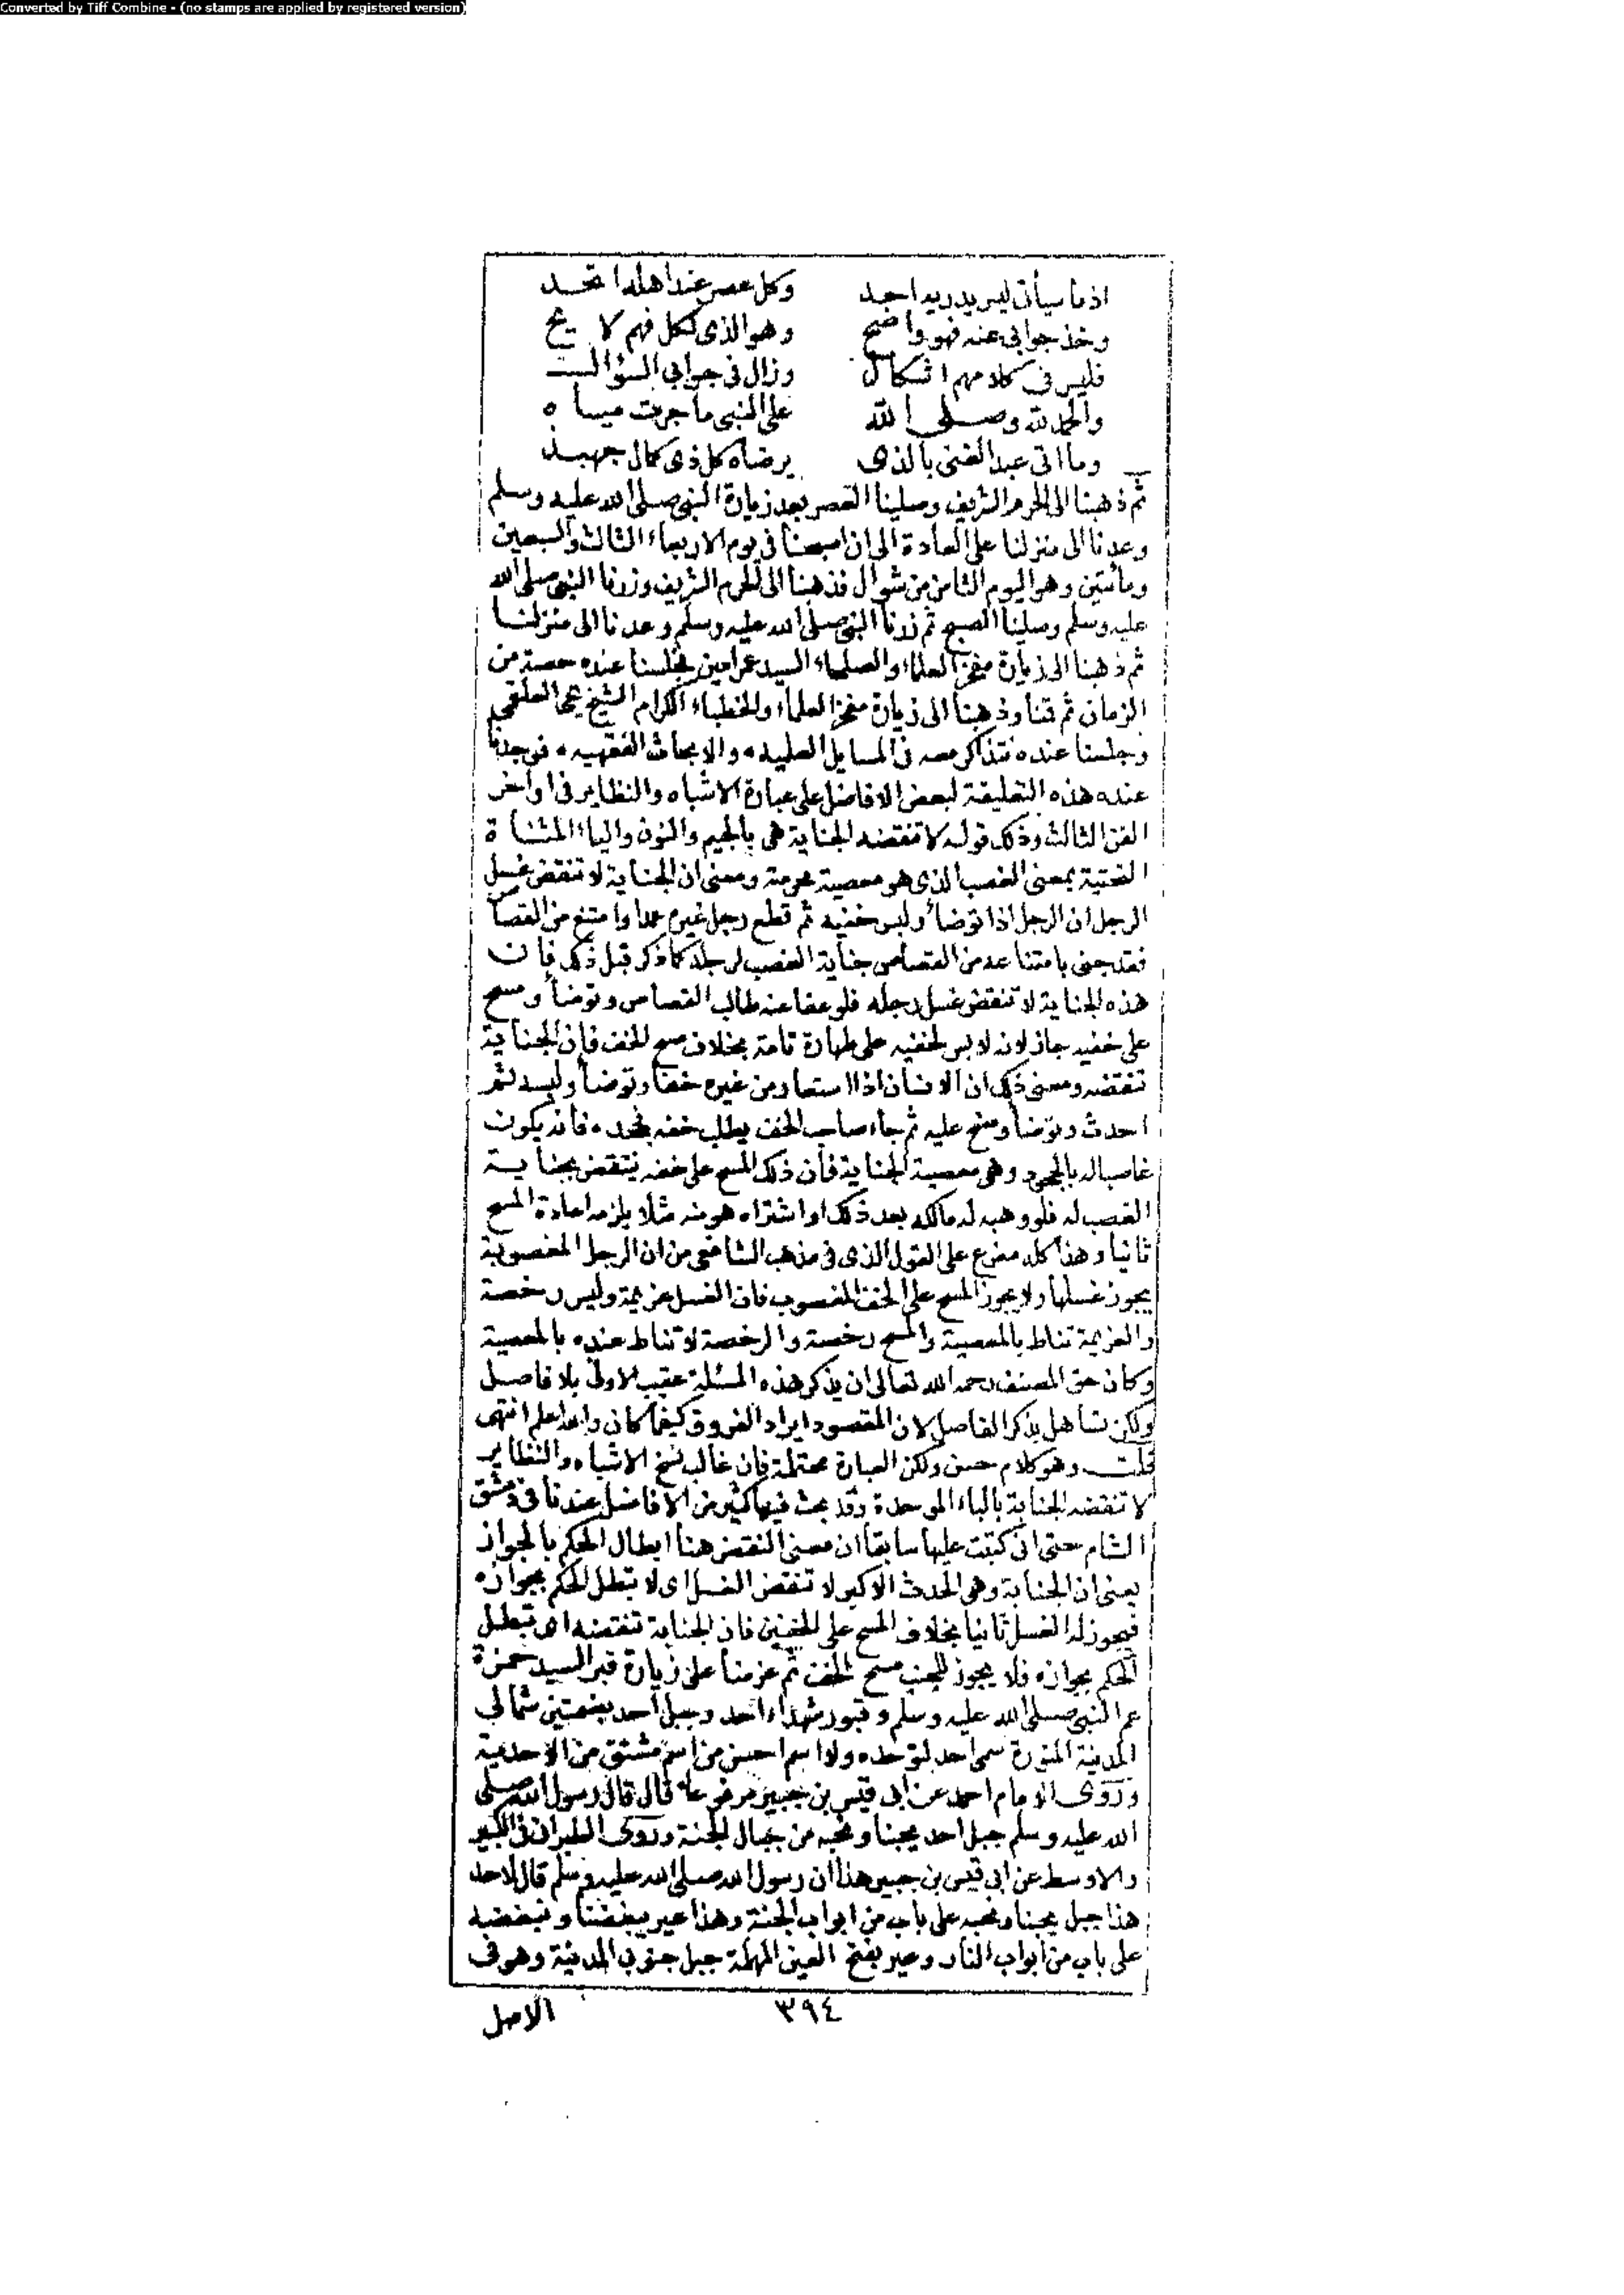 Converted by Tiff Combine - (no stamps are applied by registered version)
اذ ما سيأتى ليس يدريه احد وكل عصر عند اهله اتحد
وخذ جوابى عنه فهو واضح وهو الذى لكل فهم لايح
فليس فى كلامهم اشكال وزال فى جوابى السؤال
والحمد لله وصلى الله على النبى ما جرت مياه
وما اتى عبد الغنى بالذى يرضاه كل ذى كمال جهبذ
ثم ذهبنا الى الحرم الشريف وصلينا العصر بعد زيارة النبى صلى الله عليه وسلم
وعدنا الى منزلنا على العادة الى ان اصبحنا فى يوم الاربعاء الثالث والسبعين
ومائتين وهو اليوم الثامن من شوال فذهبنا الى الحرم الشريف وزرنا النبى صلى الله
عليه وسلم وصلينا الصبح ثم زرنا النبى صلى الله عليه وسلم وعدنا الى منزلنا
ثم ذهبنا الى زيارة مفخر العلماء والصلحاء السيد عمر امين فجلسنا عنده حصة من
الزمان ثم قمنا وذهبنا الى زيارة مفخر العلماء والخطباء الكرام الشيخ يحى العلقمى
وجلسنا عنده نتذاكر معه فى المسايل العلميه والابحاث الفقهيه فوجدنا
عنده هذه التعليقة لبعض الافاضل على عبارة الاشباه والنظاير فى اواخر
الفن الثالث وذلك قوله لا تنقضه الجناية هى بالجيم والنون والياء المثناة
التحتية بمعنى الغصب الذى هو معصية محرمة ومعنى ان الجناية لا تنقض غسل
الرجل ان الرجل اذا توضأ ولبس خفيه ثم قطع رجل غيره عمدا وامتنع من القصاص
فقد جنى بامتناعه من القصاص جناية الغصب لرجله كما ذكر قبل ذلك فان
هذه الجناية لا تنقض غسل رجله فلو عفا عنه طالب القصاص وتوضأ ومسح
على خفيه جاز لانه لابس لخفيه على طهارة تامة بخلاف مسح الخف فان الجناية
تنقضه ومعنى ذلك ان الانسان اذا استعار من غيره خفا وتوضأ ولبسه ثم
احدث وتوضأ ومسح عليه ثم جاء صاحب الخف يطلب خفه فجحده فانه يكون
غاصبا له بالجحود وهى معصية الجناية فان ذلك المسح على خفه ينتقض بجناية
الغصب له فلو وهبه له مالكه بعد ذلك او اشتراه هو منه مثلا يلزمه اعادة المسح
ثانيا وهذا كله مفرع على القول الذى فى مذهب الشافعى من ان الرجل المغصوبة
يجوز غسلها ولا يجوز المسح على الخف المغصوب فان الغسل عزيمة وليس رخصة
والعزيمة تناط بالمعصية والمسح رخصة والرخصة لا تناط عنده بالمعصية
وكان حق المصنف رحمه الله تعالى ان يذكر هذه المسئلة عقب الاولى بلا فاصل
ولكن تساهل بذكر الفاصل لان المقصود ايراد الفروق كيفما كان والله اعلم انتهى
قلت وهو كلام حسن ولكن العبارة محتملة فان غالب نسخ الاشباه والنظاير
لا تنقضه الجنابة بالباء الموحدة وقد بحث فيها كثير من الافاضل عندنا فى دمشق
الشام حتى انى كتبت عليها سابقا ان معنى النقض هنا ابطال الحكم بالجواز
يعنى ان الجنابة وهى الحدث الاكبر لا تنقض الغسل اى لا تبطل الحكم بجوازه
فيجوز له الغسل ثانيا بخلاف المسح على الخفين فان الجنابة تنقضه اى تبطل
الحكم بجوازه فلا يجوز للجنب مسح الخف ثم عزمنا على زيارة قبر السيد حمزة
عم النبى صلى الله عليه وسلم وقبور شهداء احد وجبل احد بضمتين شمالى
المدينة المنورة سمى احد لتوحده ولا اسم احسن من اسم مشتق من الاحدية
وروى الامام احمد عن ابى قيس بن جبير مرفوعا قال قال رسول الله صلى
الله عليه وسلم جبل احد يحبنا ونحبه من جبال الجنة وروى الطبرانى فى الكبير
والاوسط عن ابى قيس بن جبير هذا ان رسول الله صلى الله عليه وسلم قال لاحد
هذا جبل يحبنا ونحبه على باب من ابواب الجنة وهذا عير يبغضنا ونبغضه
على باب من ابواب النار وعير بفتح العين المهملة جبل جنوب المدينة وهو فى
الاصل
٣٩٤